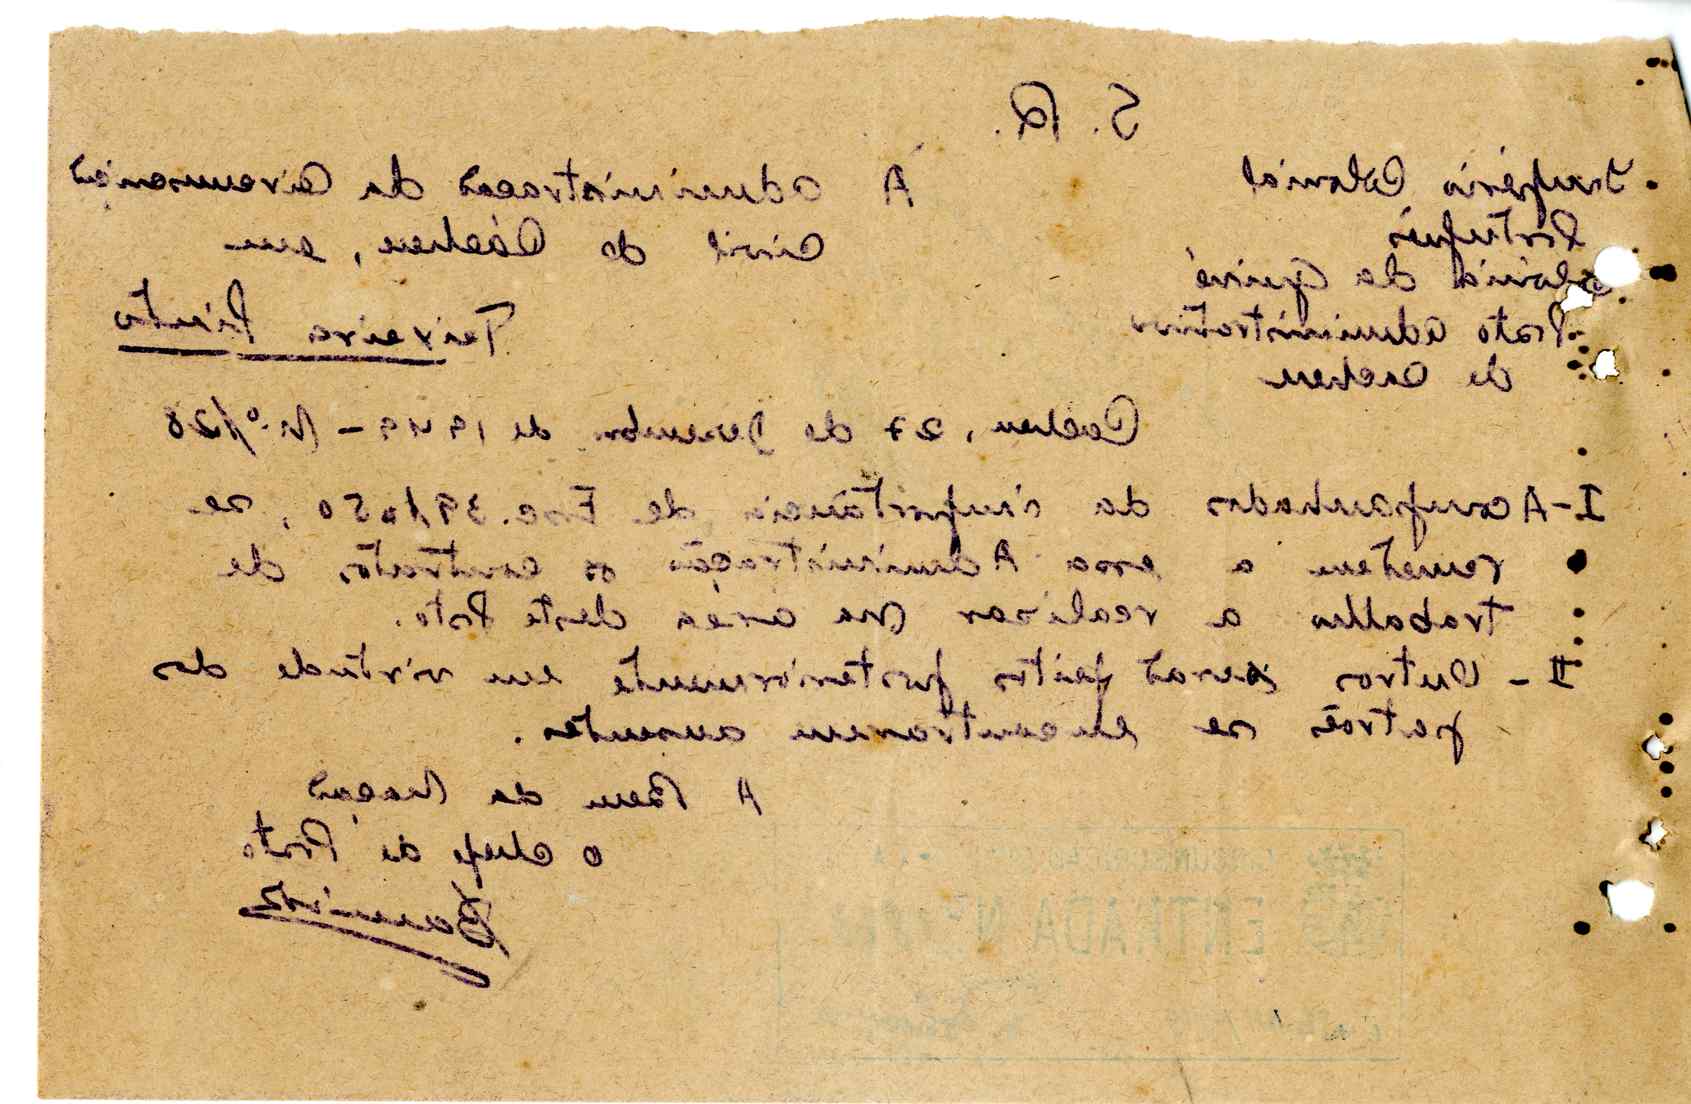 S. R.
Império Colonial
Português
Colónia da Guiné
Posto administrativo
de Cacheu
A administração da Circunscrição
Civil de Cácheu, em
Teixeira Pinto
Cacheu, 27 de Dezembro de 1949 - N.º/28
I - Acompanhados da importância de Esc. 39/1050, se
remetem a essa Administração os contratos de
trabalho a realizar na área deste Posto.
II - Outros serão feitos posteriormente em virtude dos
patrões se encontrarem ausentes.
A Bem da Nação
O chefe de Posto
ENTRADA Nº